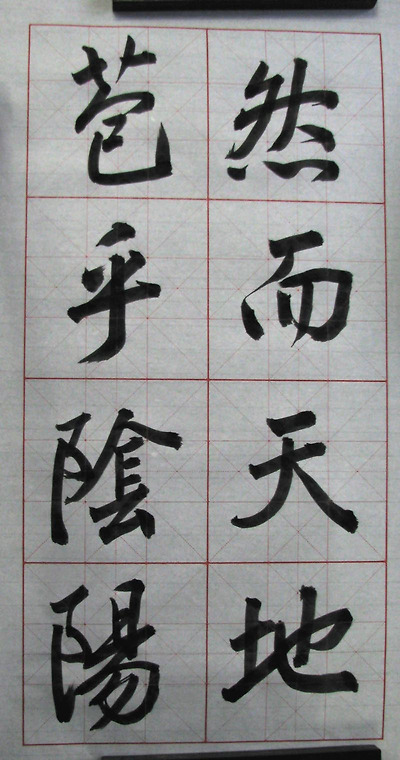 然而天地
苞乎陰陽